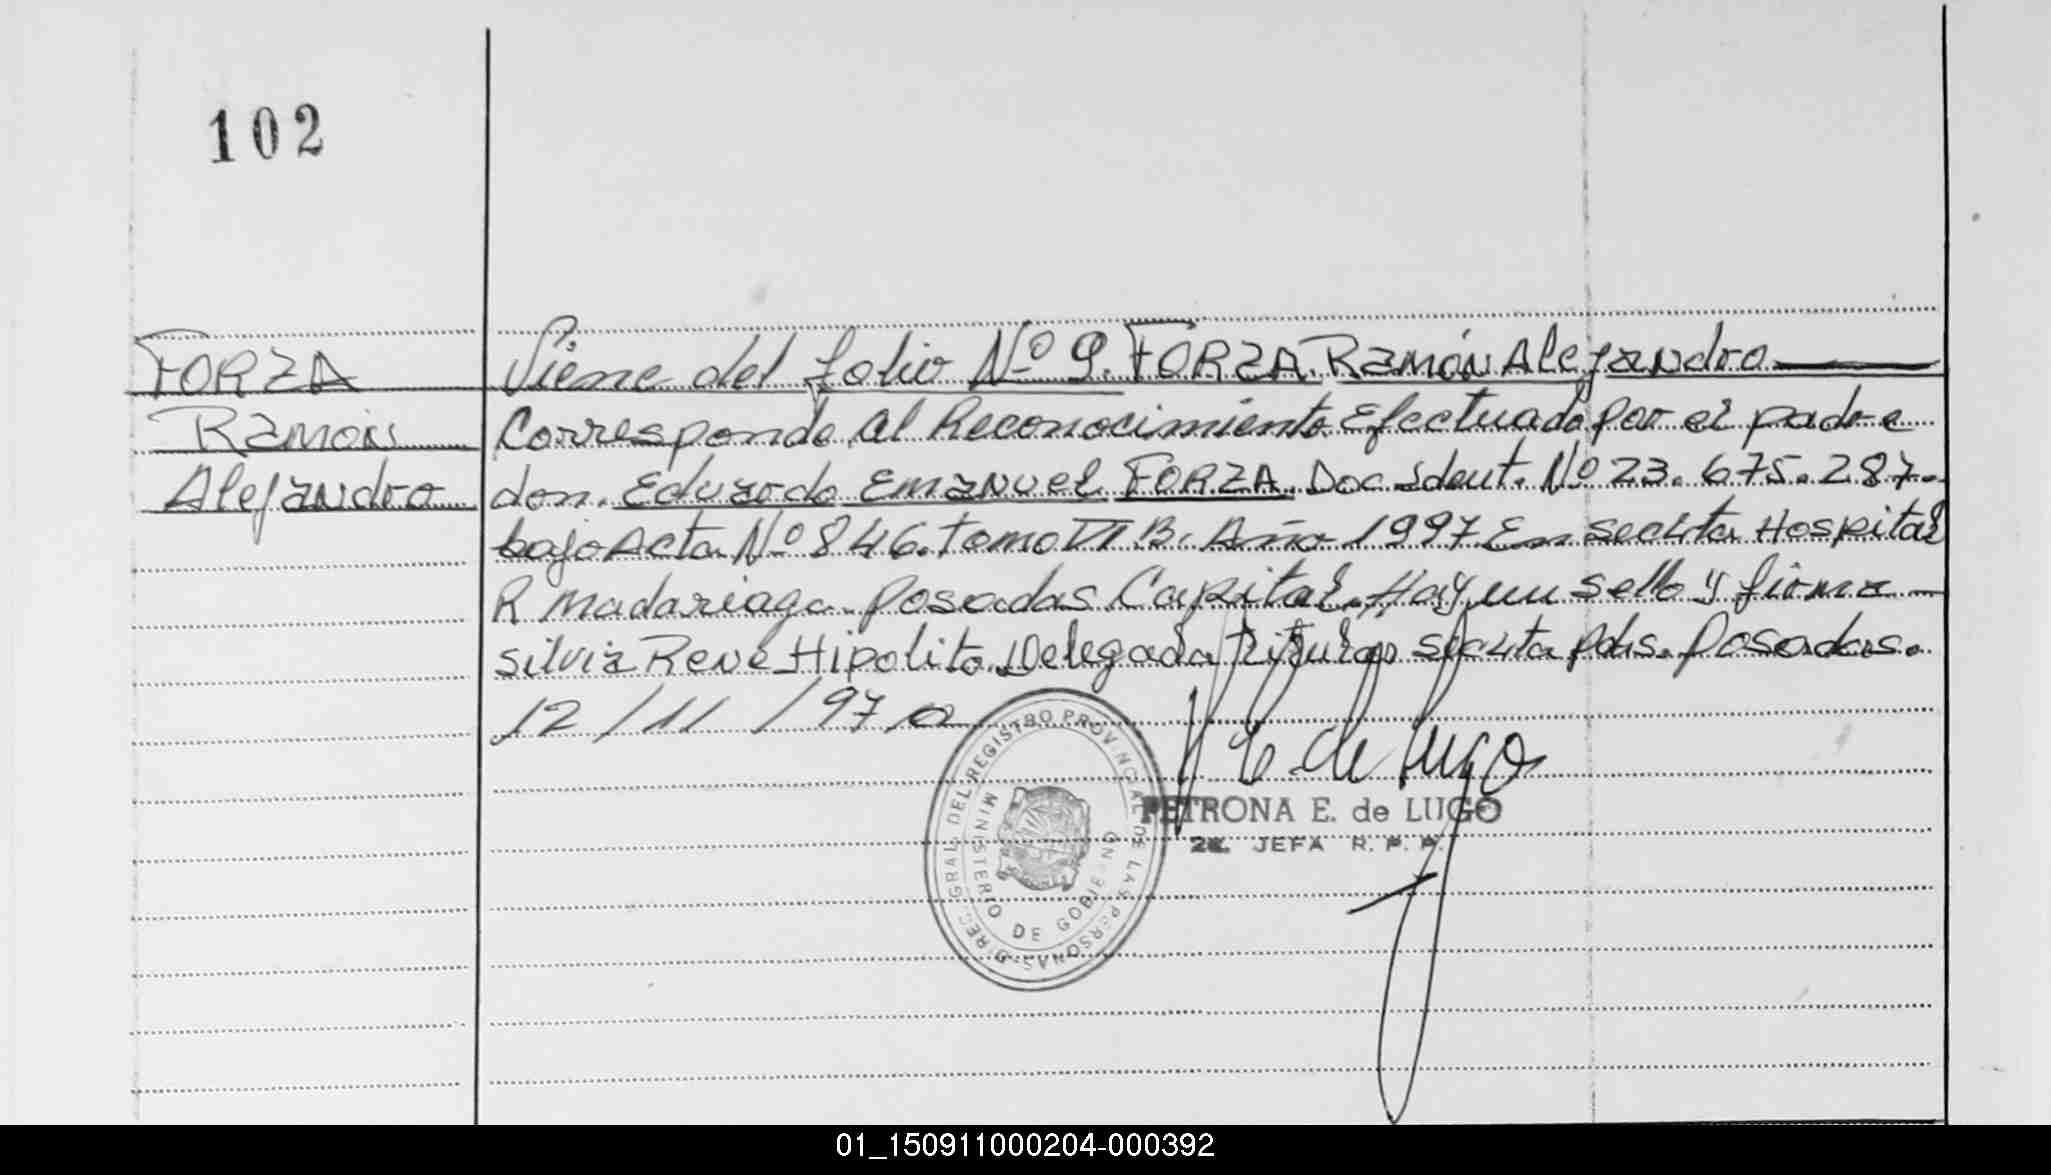 102
FORZA
Ramón
Alejandro
Viene del folio Nº 9. FORZA. Ramón Alejandro
Corresponde al Reconocimiento Efectuado por el padre
don. Eduardo Emanuel FORZA. Doc Ident. Nº 23.675.287.
bajo Acta Nº 846. Tomo VI B. Año 1997 En Hospital
R Madariaga Posadas Capital. Hay un sello y firma
Silvia Rene Hipolito. Delegada Titular Pdas. Posadas.
12/11/97
DIREC. GRAL. DEL REGISTRO PROVINCIAL DE LAS PERSONAS
MINISTERIO DE GOBIERNO
MISIONES
P E. de Lugo
PETRONA E. de LUGO
2da. JEFA R. P. P.
01_150911000204-000392